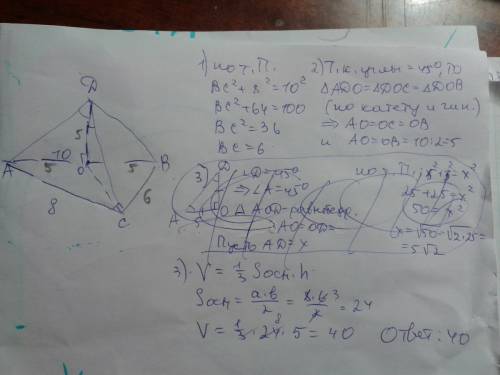 D
5
10
A
5
O
5
B
8
6
C
1) по т.П.
BC² + 8² = 10²
BC² + 64 = 100
BC² = 36
BC = 6
2) Т.к. углы = 45°, то
△ADO = △DOC = △DOB
(по катету и
⇒ AO = OC = OB
и AO = OB = 10:2 = 5
3)
D
∠D = 45°
⇒ ∠A = 45°
A
O
△AOD - равнобедр.
AO = OD =
Пусть AD = x
по т.П.
25 + 25 = x²
50 = x²
x = √50 = √2·25 =
= 5√2
3). V = 1/3 Sосн. h
Sосн = a·b/2 = 8·6³/2 = 24
V = 1/3 · 24⁸ · 5 = 40
Ответ: 40